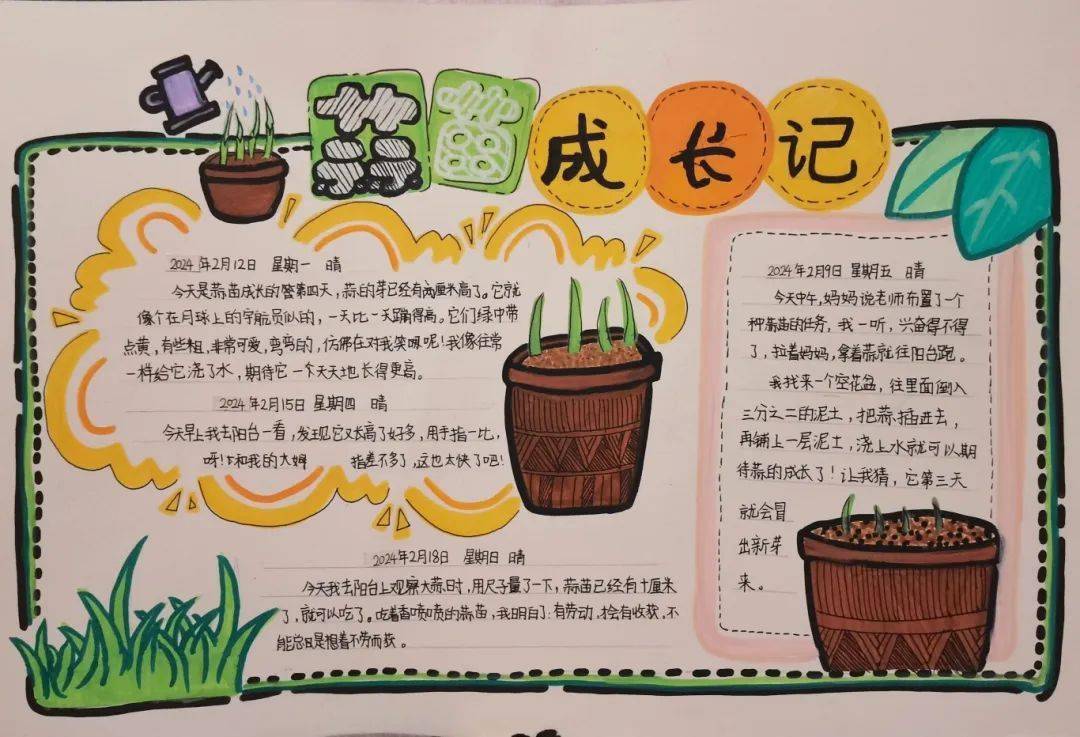 蒜苗成长记
2024年2月12日 星期一 晴
今天是蒜苗成长的第四天，蒜的芽已经有两厘米高了。它就
像个在月球上的宇航员似的，一天比一天蹦得高。它们绿中带
点黄，有些粗，非常可爱，弯弯的，仿佛在对我笑眯呢！我像往常
一样给它浇了水，期待它一个天天地长得更高。
2024年2月15日 星期四 晴
今天早上我去阳台一看，发现它又长高了好多，用手指一比，
呀！和我的大姆 指差不多了，这也太快了吧！
2024年2月18日 星期日 晴
今天我去阳台上观察大蒜时，用尺子量了一下，蒜苗已经有十厘米
了，就可以吃了。吃着香喷喷的蒜苗，我明白了：有劳动，才会有收获，不
能总是想着不劳而获。
2024年2月9日 星期五 晴
今天中午，妈妈说老师布置了一个
种蒜苗的任务，我一听，兴奋得不得
了，拉着妈妈，拿着蒜就往阳台跑。
我找来一个空花盆，往里面倒入
三分之二的泥土，把蒜插进去，
再铺上一层泥土，浇上水就可以期
待蒜的成长了！让我猜，它第三天
就会冒
出新芽
来。